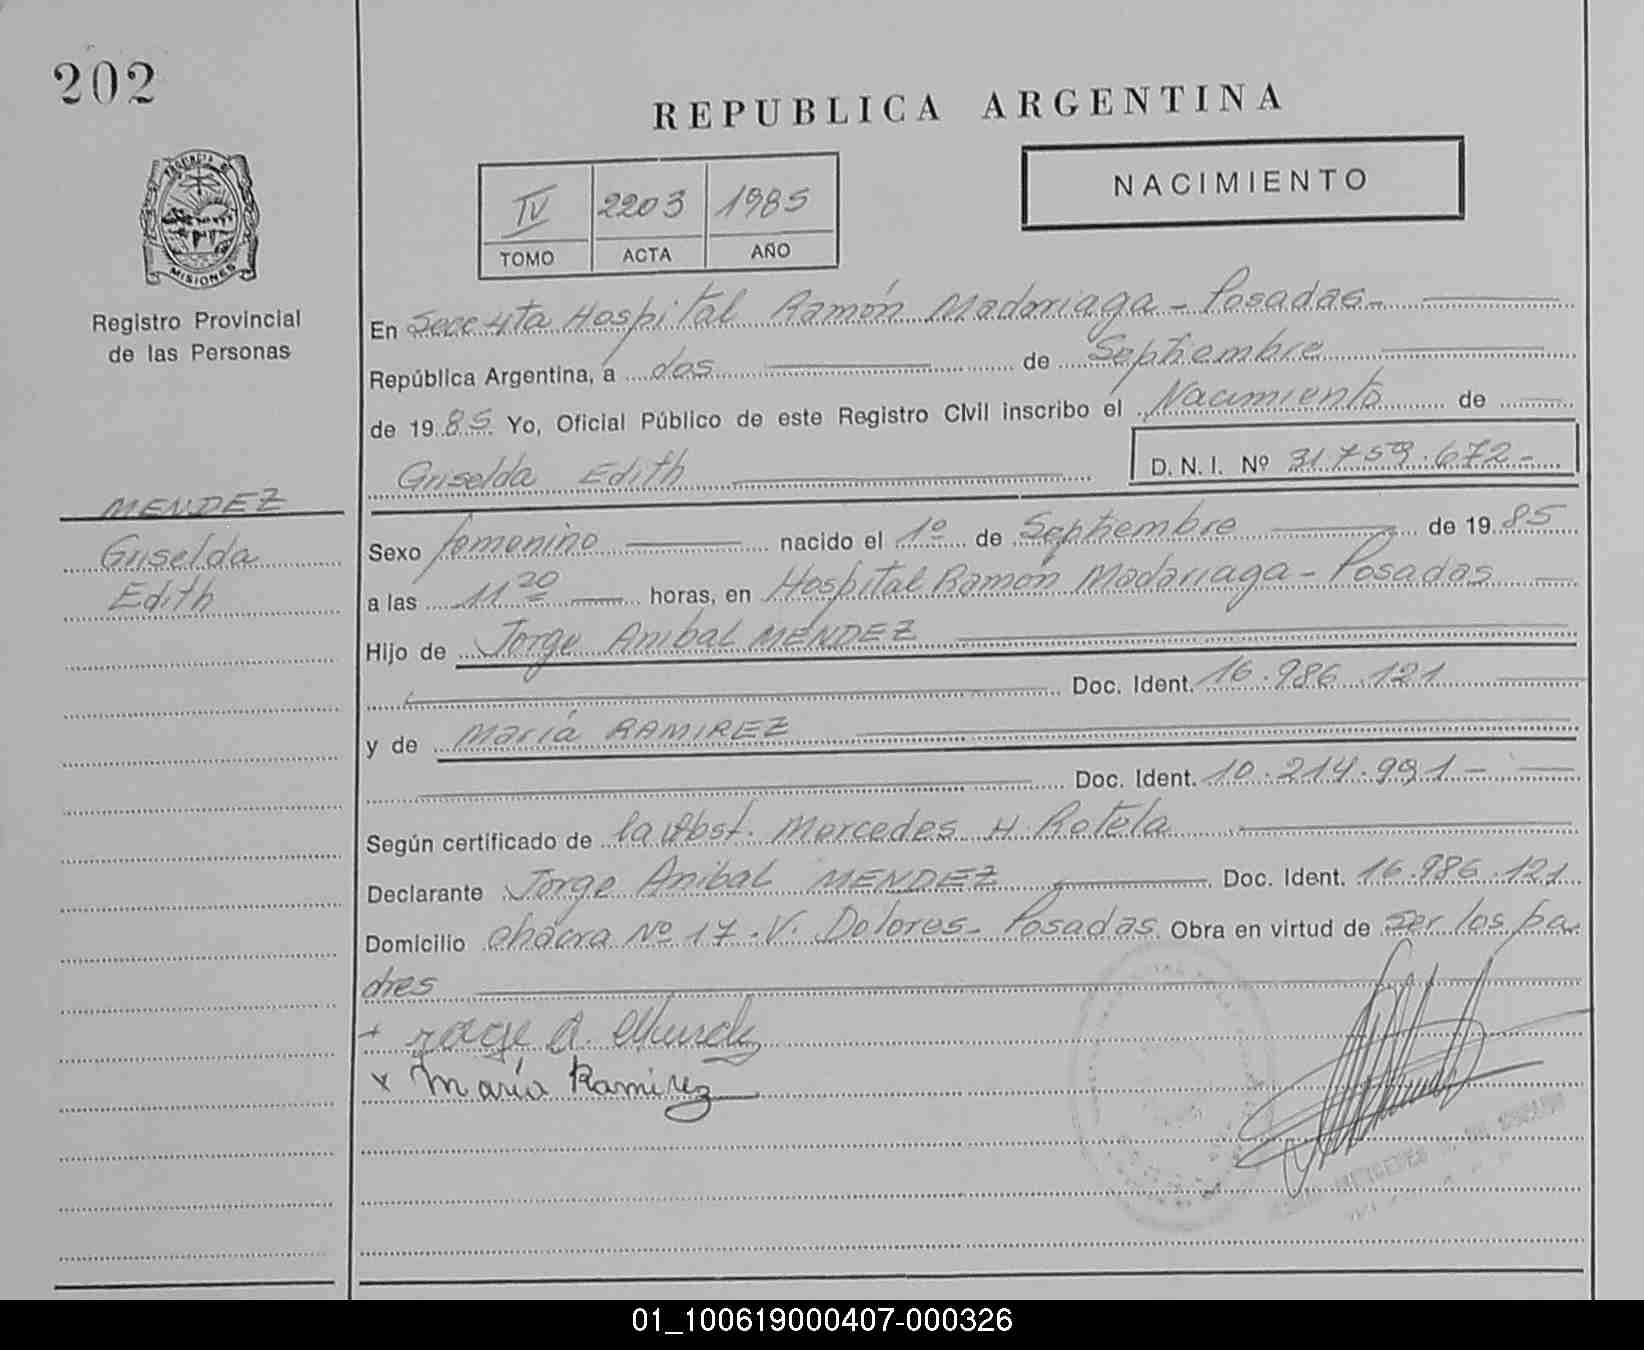 202
REPUBLICA ARGENTINA
NACIMIENTO
IV 2203 1985
TOMO ACTA AÑO
MISIONES
Registro Provincial
de las Personas
MENDEZ
Griselda
Edith
En Secc 4ta Hospital Ramón Madariaga - Posadas -
República Argentina, a dos de Septiembre
de 1985 Yo, Oficial Público de este Registro Civil inscribo el Nacimiento de
Griselda Edith D. N. I. Nº 31.759.672 -
Sexo femenino nacido el 1º de Septiembre de 1985
a las 11 20 horas, en Hospital Ramón Madariaga - Posadas
Hijo de Jorge Anibal MENDEZ
Doc. Ident. 16.986.121
y de María RAMIREZ
Doc. Ident. 10.214.991 -
Según certificado de la Obst. Mercedes H Rotela
Declarante Jorge Anibal MENDEZ Doc. Ident. 16.986.121
Domicilio chacra Nº 17. V. Dolores - Posadas Obra en virtud de ser los pa
dres
+ Jorge A. Mendez
x María Ramirez
01_100619000407-000326